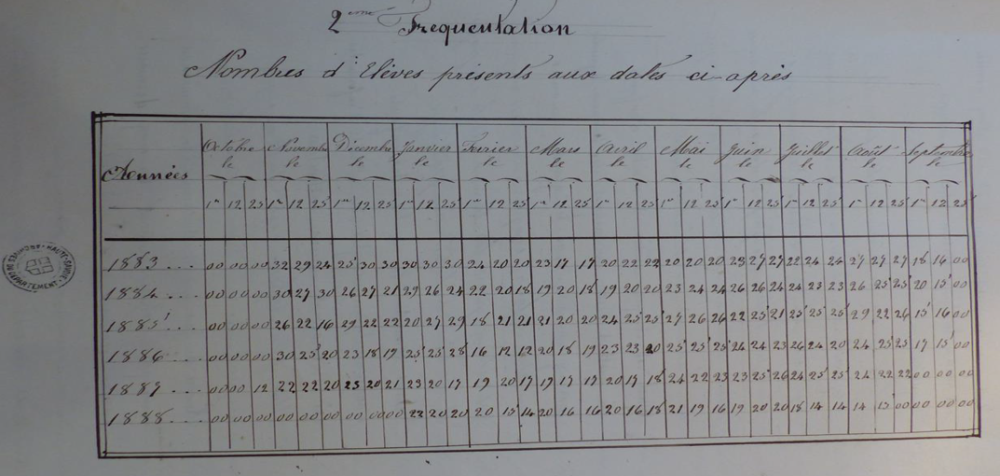 2ème Frequentation
Nombres d'Elèves présents aux dates ci-après
Années Octobre le Novembre le Décembre le Janvier le Fevrier le Mars le Avril le Mai le Juin le Juillet le Août le Septembre le
1er 12 25 1er 12 25 1er 12 25 1er 12 25 1er 12 25 1er 12 25 1er 12 25 1er 12 25 1er 12 25 1er 12 25 1er 12 25 1er 12 25
1883 ... 00 00 00 32 29 24 25 30 30 30 30 30 24 20 20 23 17 17 20 22 22 20 20 20 23 27 27 22 24 24 27 27 27 18 16 00
1884 ... 00 00 00 30 27 30 26 27 21 29 26 24 22 20 18 19 20 18 19 20 20 23 24 24 26 26 24 24 23 23 26 25 25 20 15 00
1885 ... 00 00 00 26 22 16 29 22 22 20 27 29 18 21 21 21 20 20 24 25 25 27 26 26 22 25 21 25 25 25 29 22 26 15 16 00
1886 ... 00 00 00 30 25 20 23 18 19 25 25 28 16 12 12 20 18 19 23 23 20 25 25 25 24 24 23 26 24 20 24 25 23 17 15 00
1887 ... 00 00 12 22 22 20 23 20 21 23 20 17 19 20 17 19 17 17 20 17 18 24 22 23 23 25 26 24 25 25 24 22 22 00 00 00
1888 ... 00 00 00 00 00 00 00 00 00 22 20 20 20 15 14 20 16 16 20 16 18 21 19 16 19 20 20 18 14 14 14 15 00 00 00 00